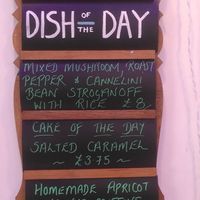 DISH OF THE DAY
MIXED MUSHROOM, ROAST
PEPPER & CANNELINI
BEAN STROGANOFF
WITH RICE £8
CAKE OF THE DAY
SALTED CARAMEL
~ £3.75 ~
HOMEMADE APRICOT